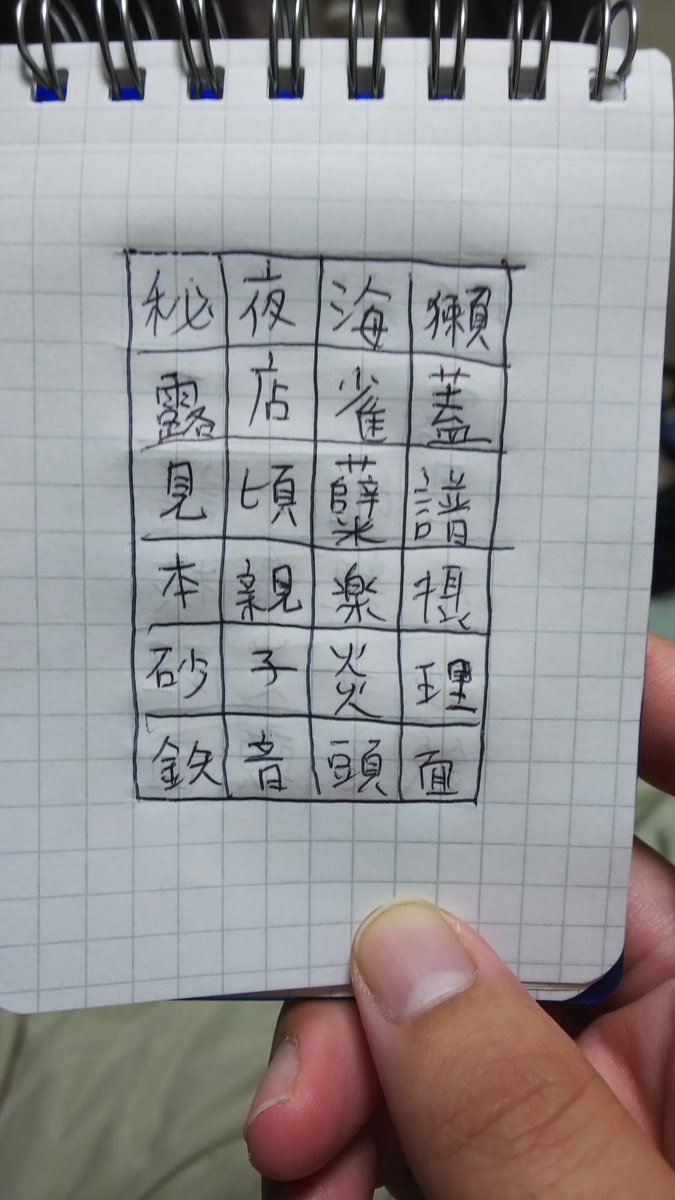 秘夜海獺
露店雀蓋
見頃糵譜
本親楽摂
砂子炎理
鉄音頭面